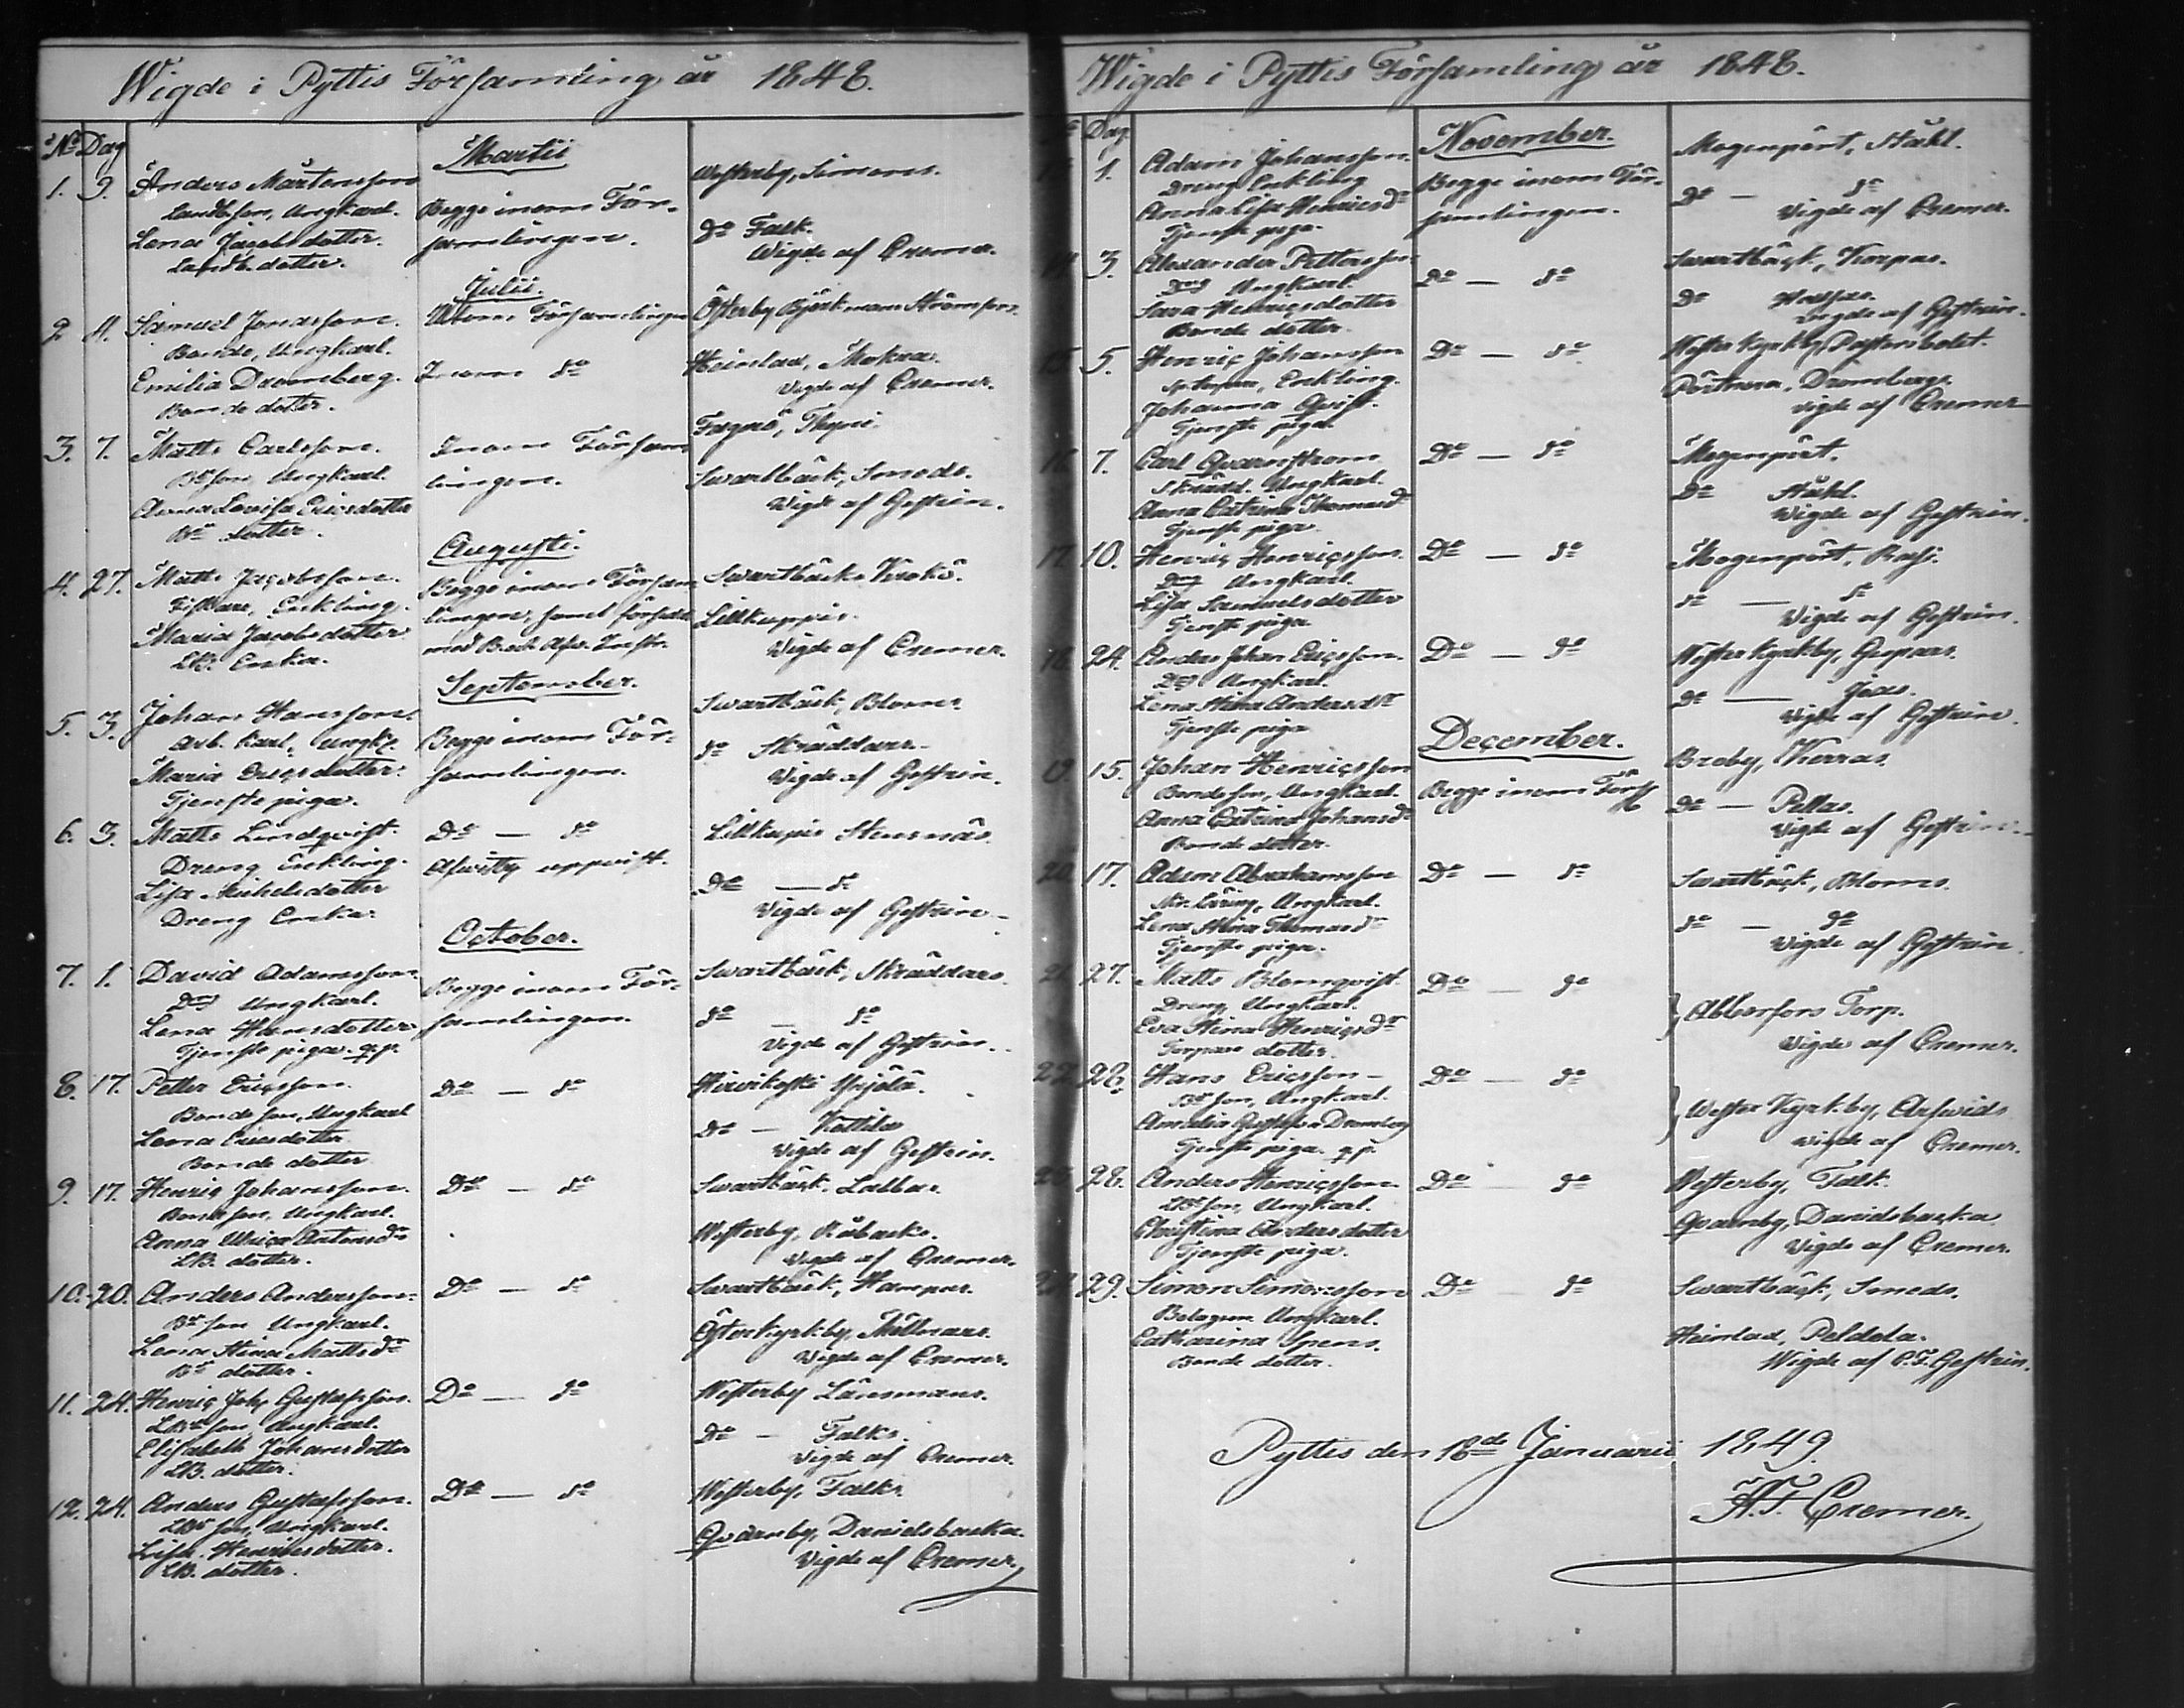 Wigde i Pyttis Församling år 1848.
No Dag
Martii
1. 9. Anders Mårtensson
Landb. son, Ungkarl.
Lena Jacobsdotter.
Landb. dotter.
Begge inom För-
samlingen.
Westerby, Simons.
Do Falk.
Wigde af Cremer.
Julii.
2 4. Samuel Jonasson.
Bonde, Ungkarl.
Emilia Dromberg.
Bonde dotter.
Utom Församlingen
Inom do
Österby Björkman Strömfors.
Heinlax, Mokra.
Vigde af Cremer.
3. 7. Matts Carlsson.
Bd son, Ungkarl.
Anna Lovisa Ericsdotter
Bd dotter.
Inom Försam
lingen.
Fagerö, Thyni
Swartbäck, Smeds.
Vigde af Gestrin.
Augusti.
4. 27. Matts Jacobsson.
Fiskare, Enkling.
Maria Jacobsdotter
LB. Enka.
Begge inom Försam
lingen, samt försedde
med Afw. Instr.
Swartbäck Krokö.
Lillkuppis.
Vigde af Cremer.
September.
5. 3. Johan Hansson.
Arb. karl, Ungk.
Maria Ericsdotter.
Tjenste piga.
Begge inom För-
samlingen.
Swartbäck, Bloms.
do Skräddars
Vigde af Gestrin.
6. 3. Matts Lindqvist.
Dreng Enkling.
Lisa Michelsdotter
Dreng Enka.
Do — do
Afwittr. uppvist.
Lillkupis Stensnäs.
Do — do
Vigde af Gestrin
October.
7. 1. David Adamsson
Dng Ungkarl.
Lena Hansdotter
Tjenste piga. q.p.
Begge inom För-
samlingen.
Swartbäck, Skräddars.
do — do
Vigde af Gestrin.
8. 17. Petter Ericsson.
Bonde son, Ungkarl
Lena Ericsdotter
Bonde dotter
Do — do
Hirvikoski Yrjölä.
Do — Kattila
Vigde af Gestrin.
9. 17. Henric Johansson.
Bonde son, Ungkarl.
Anna Ulrica Antonsdr
LB. dotter.
Do — do
Swartbäck, Lallas.
Westerby, Råbacks.
Vigde af Cremer.
10. 20. Anders Andersson.
Bd son Ungkarl.
Lena Stina Mattsdr
Bd dotter.
Do — do
Swartbäck, Hampus.
Österkyrkby, Millnars.
Wigde af Cremer.
11. 24. Henric Joh. Gustafsson.
LBd son, Ungkarl.
Elisabeth Johansdotter
LB. dotter.
Do — do
Westerby Länsmans.
Do — Falks.
Vigde af Cremer.
12. 24. Anders Gustafsson.
LBd son, Ungkarl.
Lisa Henricsdotter.
LB. dotter.
Do — do
Westerby, Falks.
Qvarnby, Danielsbacka.
Vigde af Cremer.
Wigde i Pyttis Församling år 1848.
Dag
November.
1. Adam Johansson
Dreng Enkling
Anna Lisa Henricsdr
Tjenste piga.
Begge inom För-
samlingen.
Mogenpört, Ståhl.
Do — do
Vigde af Cremer.
3. Alexander Pettersson
Dng Ungkarl.
Sara Henricsdotter
Bonde dotter.
Do — do
Swartbäck, Korpas.
Do
Vigde af Gestrin.
15 5. Henric Johansson
Enkling.
Johanna Qvist.
Tjenste piga.
Do — do
Wester Kyrkby, Pastorsbolet.
Pörtnora, Drombergs.
Vigde af Cremer
16 7. Carl Qvarnstrom
Skrädd. Ungkarl.
Anna Catrina Thomasdr
Tjenste piga.
Do — do
Mogenpört.
Do Ståhl.
Vigde af Gestrin.
17. 10. Henric Henricsson.
Dng Ungkarl.
Lisa Samuelsdotter
Tjenste piga
Do — do
Mogenpört, Rasi.
do — do
Vigde af Gestrin.
18 24. Anders Johan Ericsson.
Dng Ungkarl.
Lena Stina Andersdr
Tjenste piga
Do — do
Wester Kyrkby, Gaspars.
do — Joas.
Vigde af Gestrin.
December.
19. 15. Johan Henricsson
Bonde son, Ungkarl.
Anna Catrina Johansdr
Bonde dotter.
Begge inom Förs
Broby, Kerras.
do — Pellas.
Vigde af Gestrin
20. 17. Adam Abrahamsson
Skr. Läring, Ungkarl.
Lena Stina Thomasdr
Tjenste piga.
Do — do
Swartbäck, Bloms.
do — do
Vigde af Gestrin
21. 27. Matts Blomqvist
Dreng, Ungkarl.
Eva Stina Henricsdr
Torpare dotter.
Do — do
Abborfors Torp.
Vigde af Cremer.
22. 28. Hans Ericsson
Bd son, Ungkarl.
Amalia Gustafva Dromberg
Tjenste piga. q.p.
Do — do
Wester Kyrkby, Arfwids
Vigde af Cremer.
23 28. Anders Henricsson
LBd son, Ungkarl.
Christina Andersdotter
Tjenste piga.
Do — do
Westerby, Falk.
Qvarnby, Danielsbacka
Vigde af Cremer.
29. Simon Simonsson
Ungkarl.
Catharina Spens.
Bonde dotter.
Do — do
Swartbäck, Smeds.
Heinlax, Peldola.
Wigde af C. F. Gestrin.
Pyttis den 18de Januarii 1849.
A. F. Cremer.